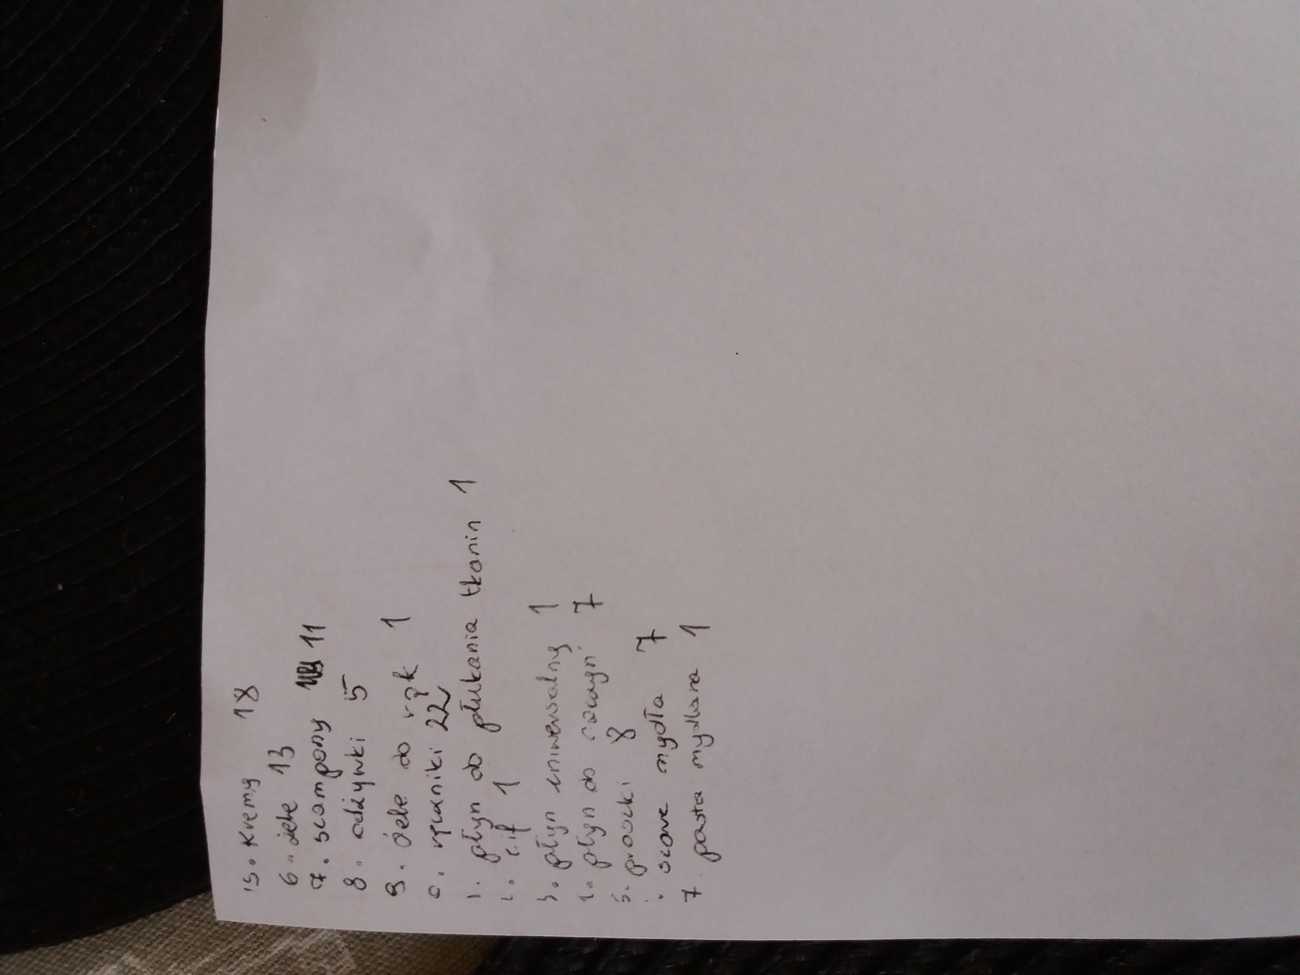 15. Kremy 18
6. żele 13
7. szampony 11
8. odżywki 5
9. żele do rąk 1
0. ręczniki 22
1. płyn do płukania tkanin 1
2. cif 1
3. płyn uniwersalny 1
4. płyn do naczyń 7
5. proszki 8
. szare mydła 7
7. pasta mydlana 1